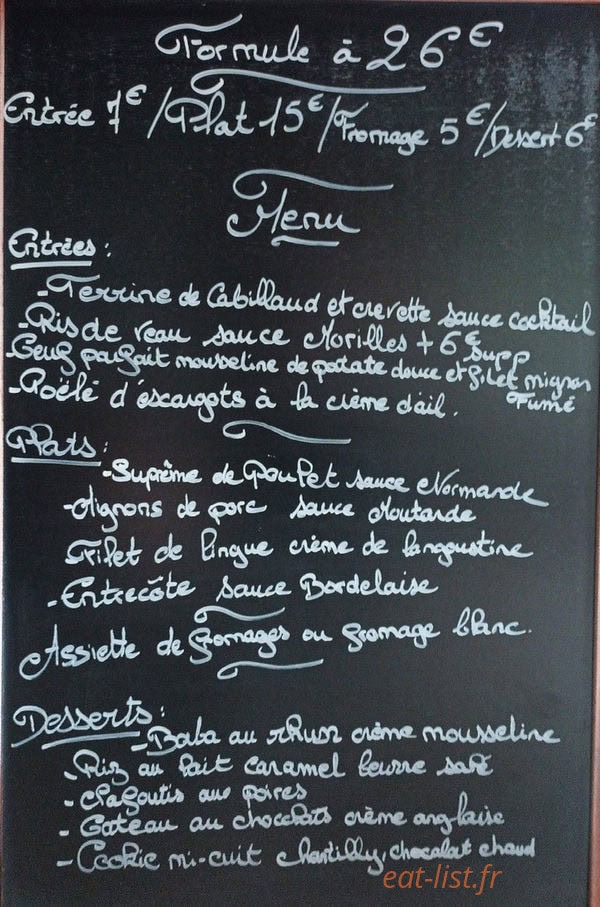 Formule à 26€
Entrée 7€ / Plat 15€ / Fromage 5€ / Dessert 6€
Menu
Entrées :
- Terrine de Cabillaud et crevette sauce cocktail
- Ris de veau sauce Morilles + 6€ supp
- Oeuf parfait mousseline de patate douce et filet mignon
Fumé
- Poëlé d'éscargots à la crème d'ail.
Plats :
- Suprême de Poulet sauce Normande
- Mignons de porc sauce Moutarde
Filet de lingue crème de langoustine
- Entrecôte sauce Bordelaise
Assiette de fromages ou fromage blanc.
Desserts :
- Baba au rhum crème mousseline
- Riz au lait caramel beurre salé
- Clafoutis aux poires
- Gateau au chocolats crème anglaise
- Cookie mi-cuit chantilly, chocolat chaud
eat-list.fr